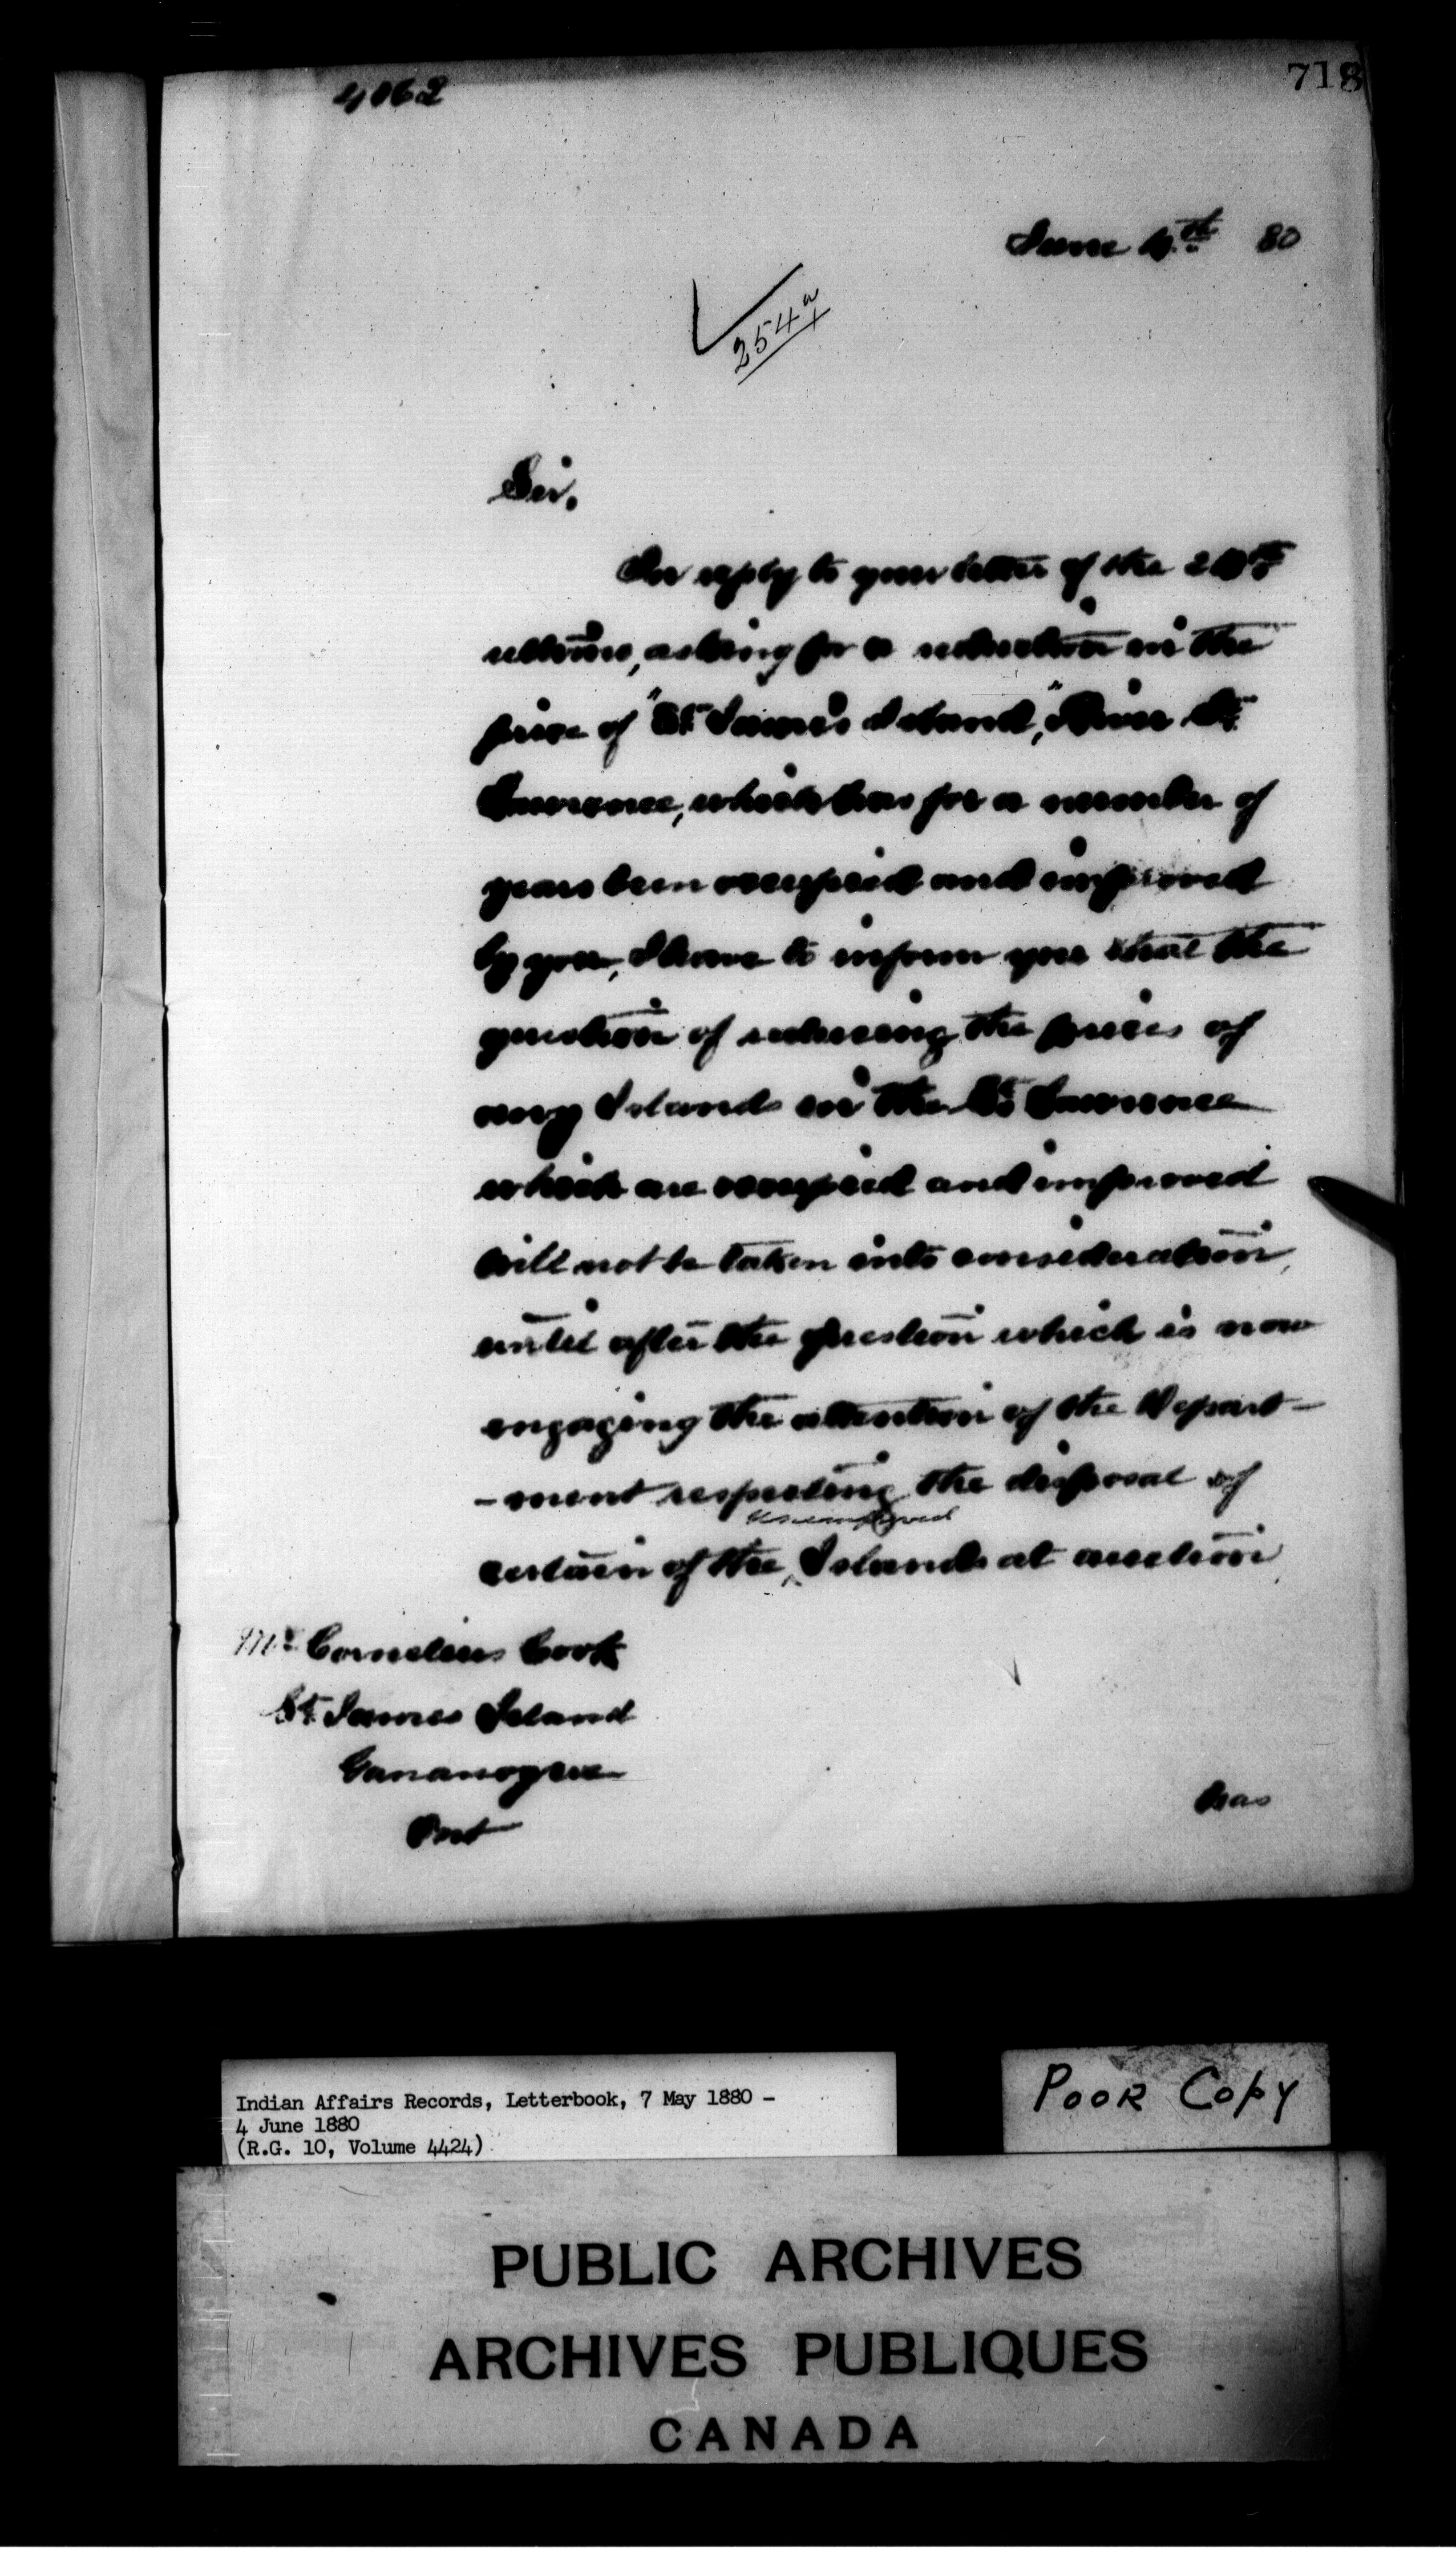 4062
718
June 4th 80
254
Sir,
In reply to your letter of the
ultimo, asking for a reduction in the
price of "St James Island," River St.
Lawrence, which has for a number of
years been occupied and improved
by you, I have to inform you that the
question of reducing the prices of
any Islands in the St Lawrence
which are occupied and improved
will not be taken into consideration
until after the question which is now
engaging the attention of the Depart-
-ment respecting the disposal of
unimproved
certain of the Islands at auction
Mr Cornelius Cook
St James Island
Gananoque
Ont
has
Indian Affairs Records, Letterbook, 7 May 1880 -
4 June 1880
(R.G. 10, Volume 4424)
Poor Copy
PUBLIC ARCHIVES
ARCHIVES PUBLIQUES
CANADA